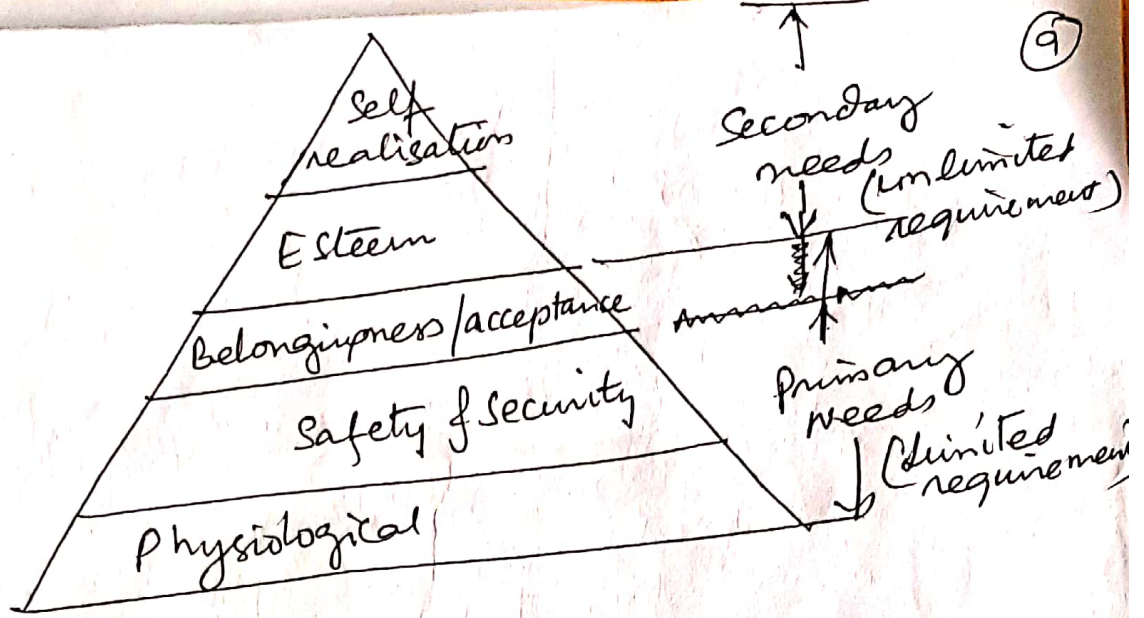 9
Self
realisation
Esteem
Belongingness/acceptance
Safety & Security
Physiological
Secondary
needs
(unlimited
requirement)
Primary
Needs
(Limited
requirement)